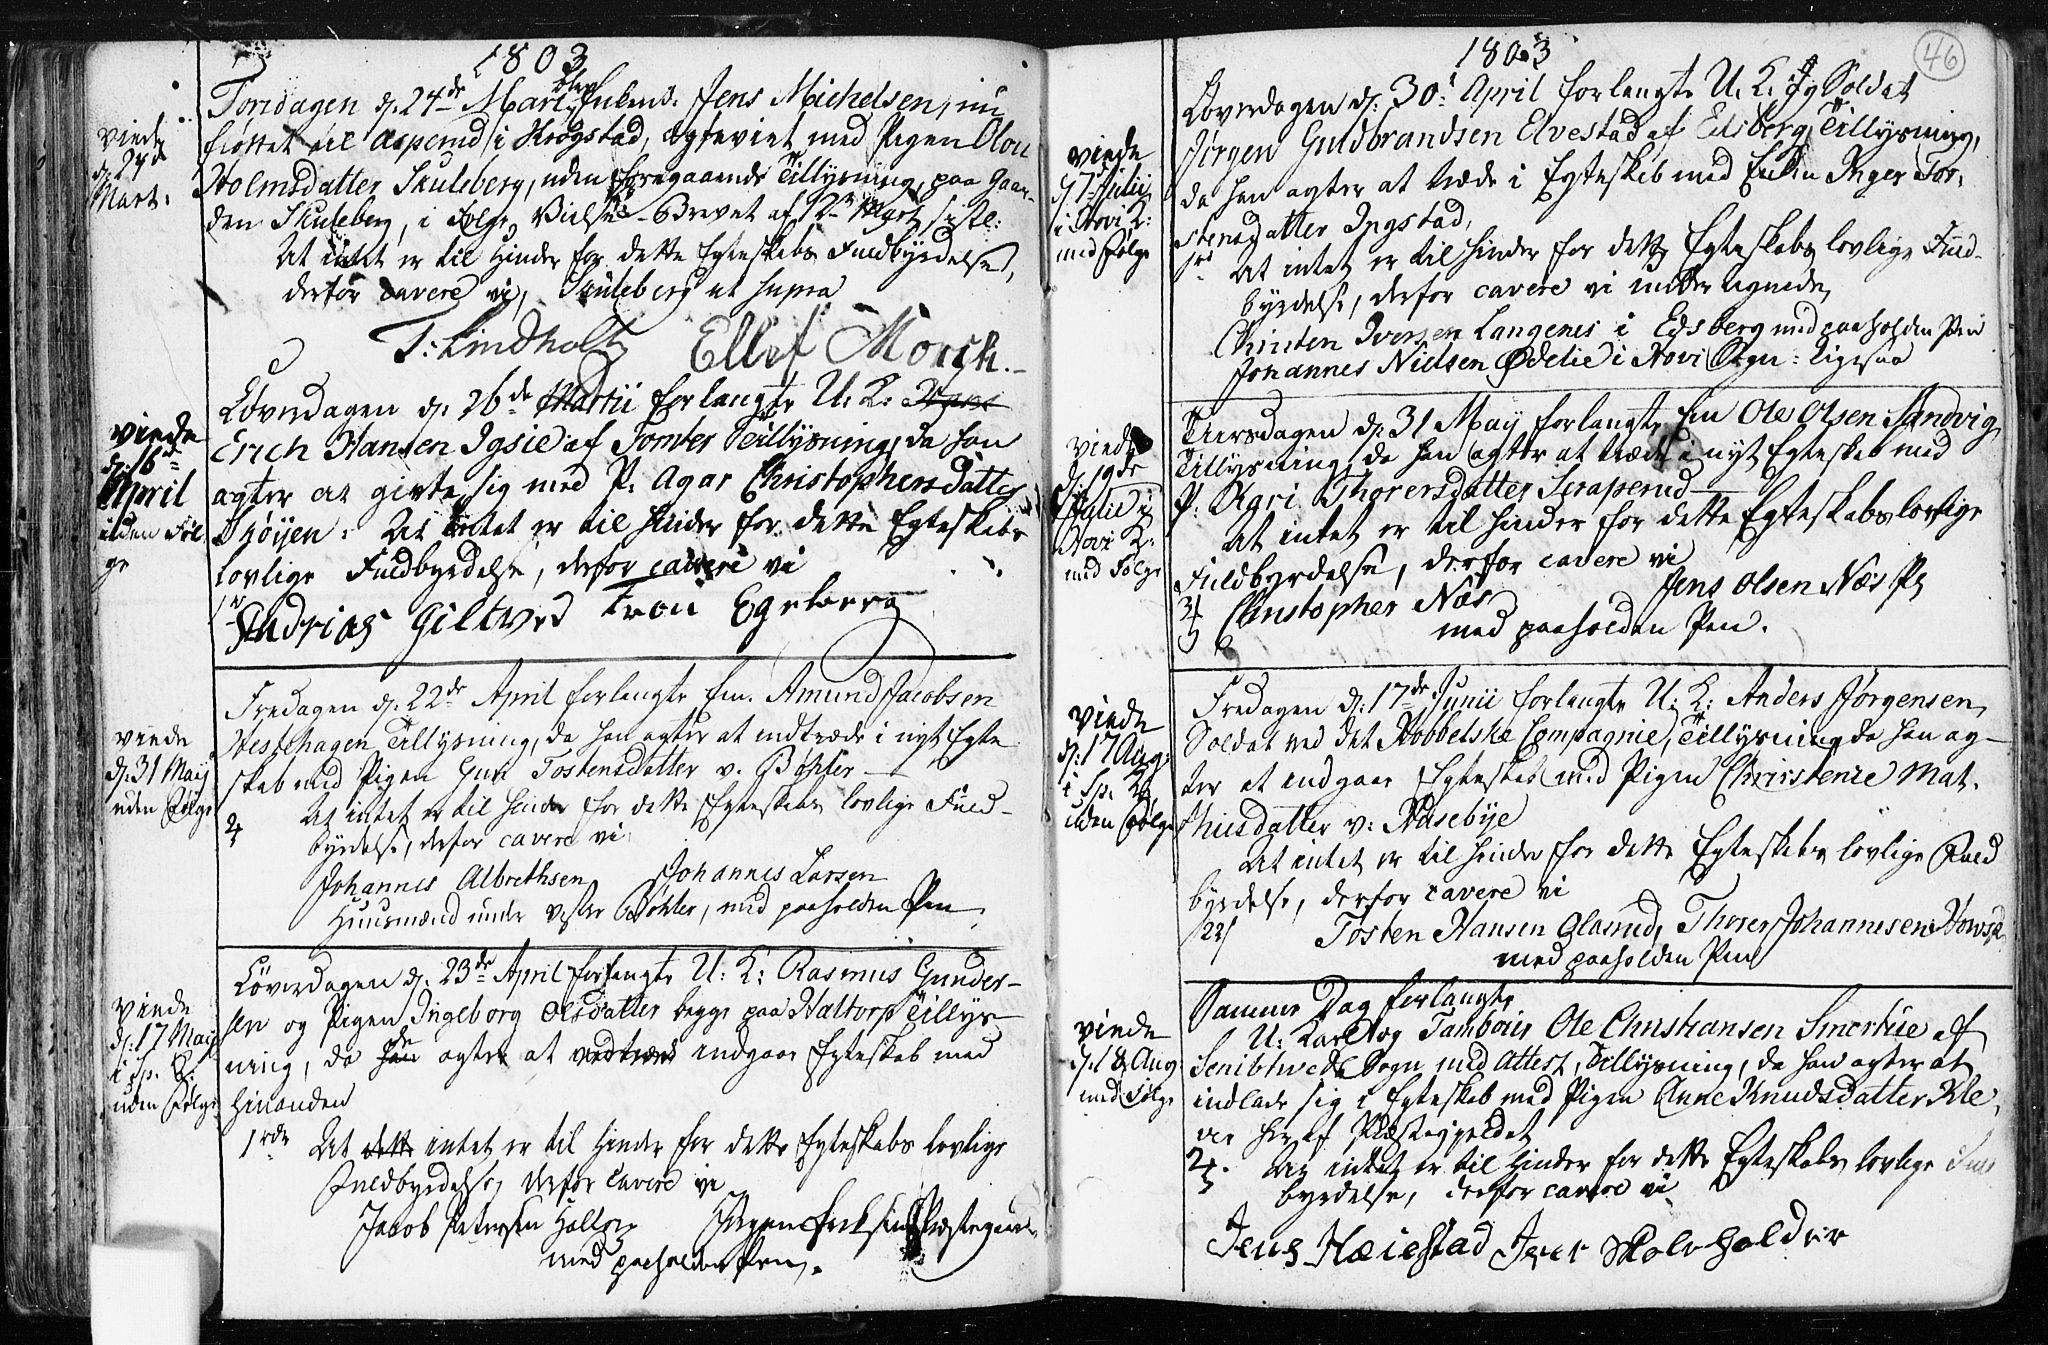 1803
Torsdagen d. 24de Mart. blev Jens Michelsen, nu
fløttet til Asperud i Krogstad, ægteviet med Pigen Olou
Holmsdatter Skuleberg, uden foregaaende Tillysning, paa Gaar-
den Skuleberg, i Følge Vielse-Brevet af 12te Mart sistl:
At intet er til Hinder for dette Egteskabs Fuldbyrdelse,
derfor cavere vi, Skuleberg ut supra
T: Lindholt Ellef Morck.
viede
d. 24de
Mart.
Løverdagen d. 26de Martii forlangte U. K:
Erich Hansen Igsie af Tomter Tillysning, da han
agter at givte sig med P. Agar Christophersdatter
Skøyen: At intet er til Hinder for dette Egteskabs
lovlige Fuldbyrdelse, derfor cavere vi
Andrias Giltved Tron Egeberg
viede
d. 16de
April
uden Føl-
ge
Fredagen d. 22de April forlangte Em. Amund Jacobsen
Westehagen Tillysning, da han agter at indtræde i nyt Egte
skab med Pigen Guri Tostensdatter v. Bøhler
At intet er til Hinder for dette Egteskabs lovlige Fuld-
byrdelse, derfor cavere vi
Johannes Albrethsen Johannes Larsen
Huusmænd under Vester Bøhler, med paaholden Pen.
viede
d. 31 Maij
uden Følge
Løverdagen d. 23de April forlangte U: K: Rasmus Gunder-
sen og Pigen Ingeborg Olsdatter begge paa Haltorp Tillys-
ning, da de agter at indgaae Egteskab med
hinanden
1ste At dette intet er til Hinder for dette Egteskabs lovlige
Fuldbyrdelse, derfor cavere vi
Jacob Petersen Haltorp
med paaholden Pen.
viede
d. 17 Maij
i Sp. K:
uden Følge
1803
46
Løverdagen d. 30te April forlangte U. K. Soldat
Jørgen Guldbrandsen Elvestad af Edsberg Tillysning,
da han agter at træde i Egteskab med Enken Inger Tor-
stensdatter Ingstad,
At intet er til Hinder for dette Egteskabs lovlige Fuld-
byrdelse, derfor cavere vi undertegnede,
Christen Iversen Langenes i Edsberg med paaholden Pen
Johannes Nielsen Ødelie i Hovi Sogn: ligesaa
viede
d. 7de Julij
i Hovi K:
med Følge
Tiirsdagen d. 31 May forlangte Em Ole Olsen Sandvig
Tillysning, da han agter at træde i nyt Egteskab med
P. Kari Thorersdatter Seraperud
At intet er til Hinder for dette Egteskabs lovlige
Fuldbyrdelse, derfor cavere vi
Christopher Næs Jens Olsen Næs
med paaholden Pen.
viede
d. 19de
Julii i
Hovi K:
med Følge
Fredagen d. 17de Junii forlangte U. K: Anders Jørgensen,
Soldat ved det Kobbelske Compagnie, Tillysning da han ag-
ter at indgaae Egteskab med Pigen Christenie Mat-
thiisdatter v: Haasebye
At intet er til Hinder for dette Egteskabs lovlige Fuld
byrdelse, derfor cavere vi
Tosten Hansen Glasrud, Thorer Johannesen
med paaholden Pen
viede
d. 17 Aug.
i Sp. K:
uden Følge
Samme Dag forlangte
U. Karl og Tambour Ole Christiansen Smertue af
Schibtvedt Sogn med Attest, Tillysning, da han agter at
indlade sig i Egteskab med Pigen Anne Knudsdatter Kle-
ven her af Præstegieldet
At intet er til Hinder for dette Egteskabs lovlige Ful
byrdelse, derfor cavere vi
Jens Hæiestad Iver Skoleholder
viede
d. 18 Aug.
med Følge